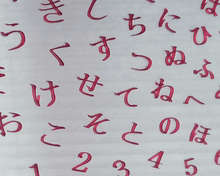 きしちに
うくすつぬふ
けせてねへ
おこそとのほ
12345